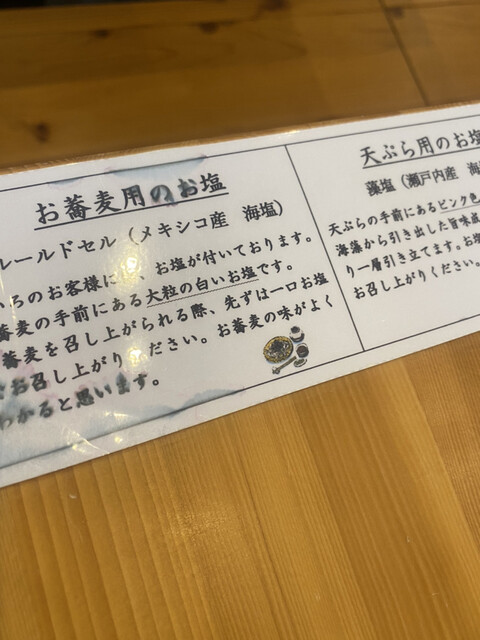 お蕎麦用のお塩
ルールドセル（メキシコ産 海塩）
いろのお客様に、お塩が付いております。
蕎麦の手前にある大粒の白いお塩です。
蕎麦を召し上がられる際、先ずは一口お塩
でお召し上がりください。お蕎麦の味がよく
わかると思います。
天ぷら用のお塩
藻塩（瀬戸内産 海
天ぷらの手前にあるピンク色
海藻から引き出した旨味成
り一層引き立てます。お塩
お召し上がりください。